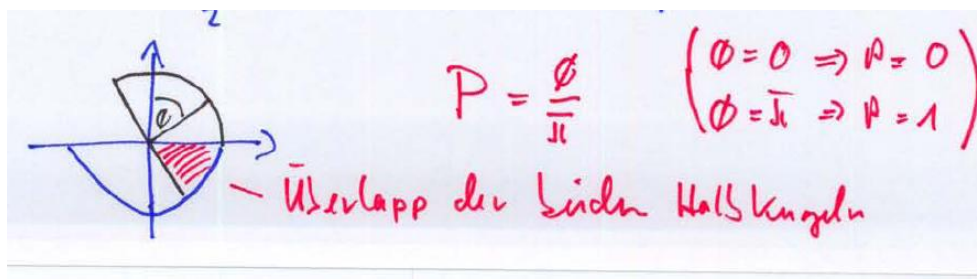 P = ϕ/π
(ϕ = 0 ⇒ P = 0
ϕ = π ⇒ P = 1)
ϕ
Überlapp der beiden Halbkugeln